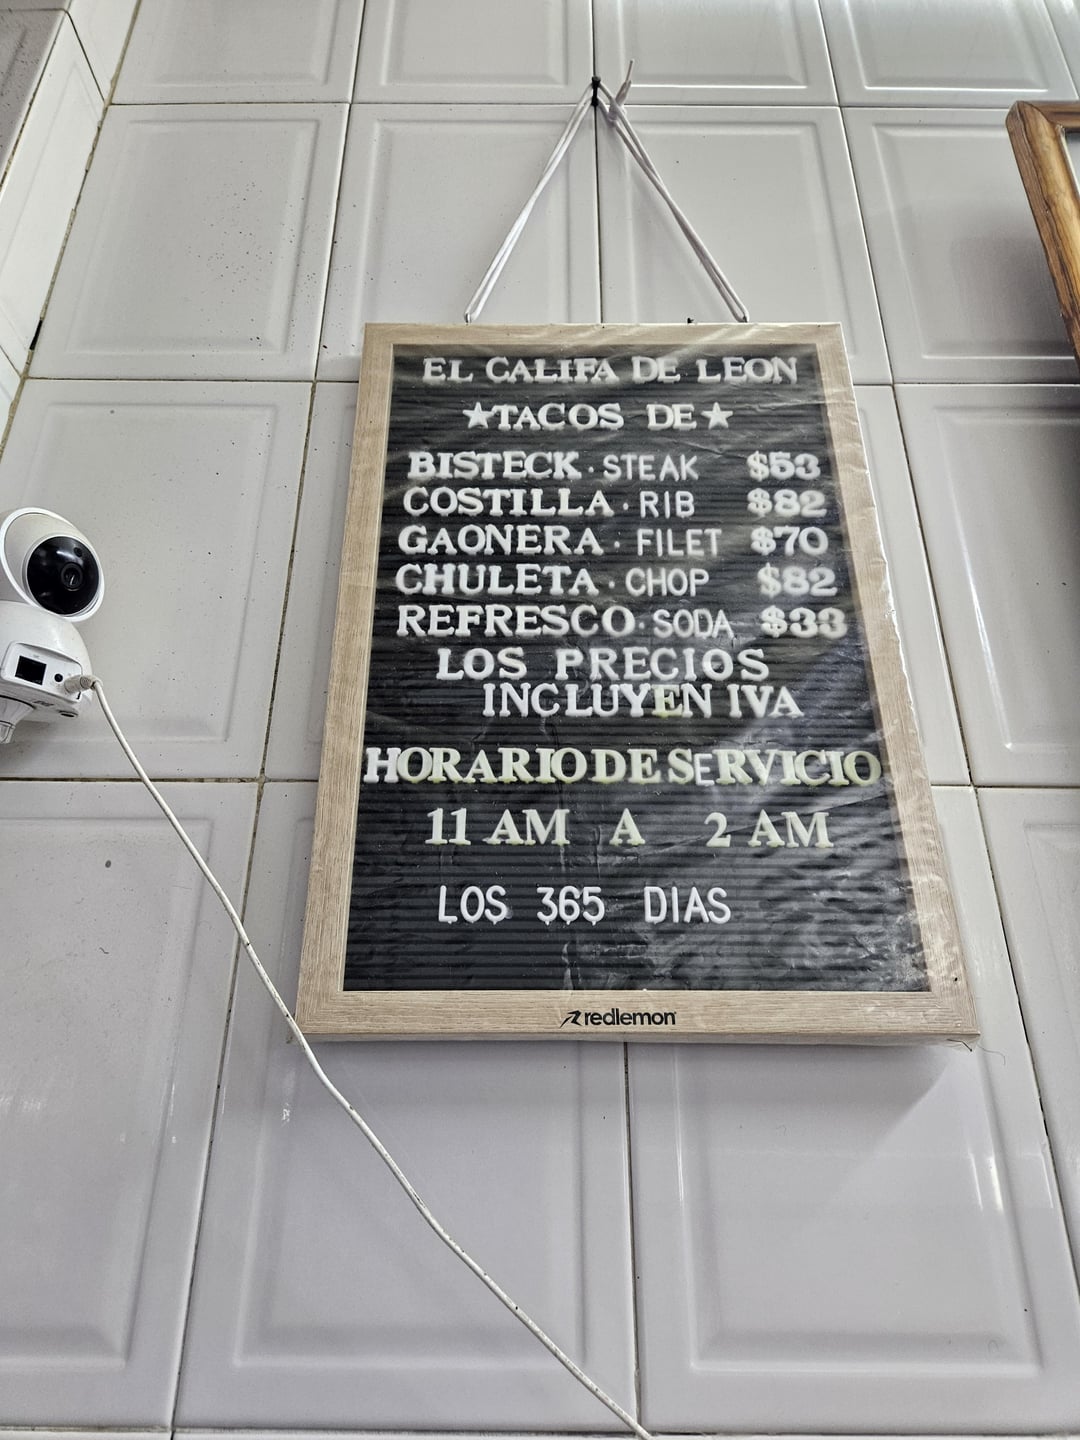 EL CALIFA DE LEON
★TACOS DE★
BISTECK · STEAK $53
COSTILLA · RIB $82
GAONERA · FILET $70
CHULETA · CHOP $82
REFRESCO · SODA $33
LOS PRECIOS
INCLUYEN IVA
HORARIO DE SERVICIO
11 AM A 2 AM
LOS 365 DIAS
redlemon